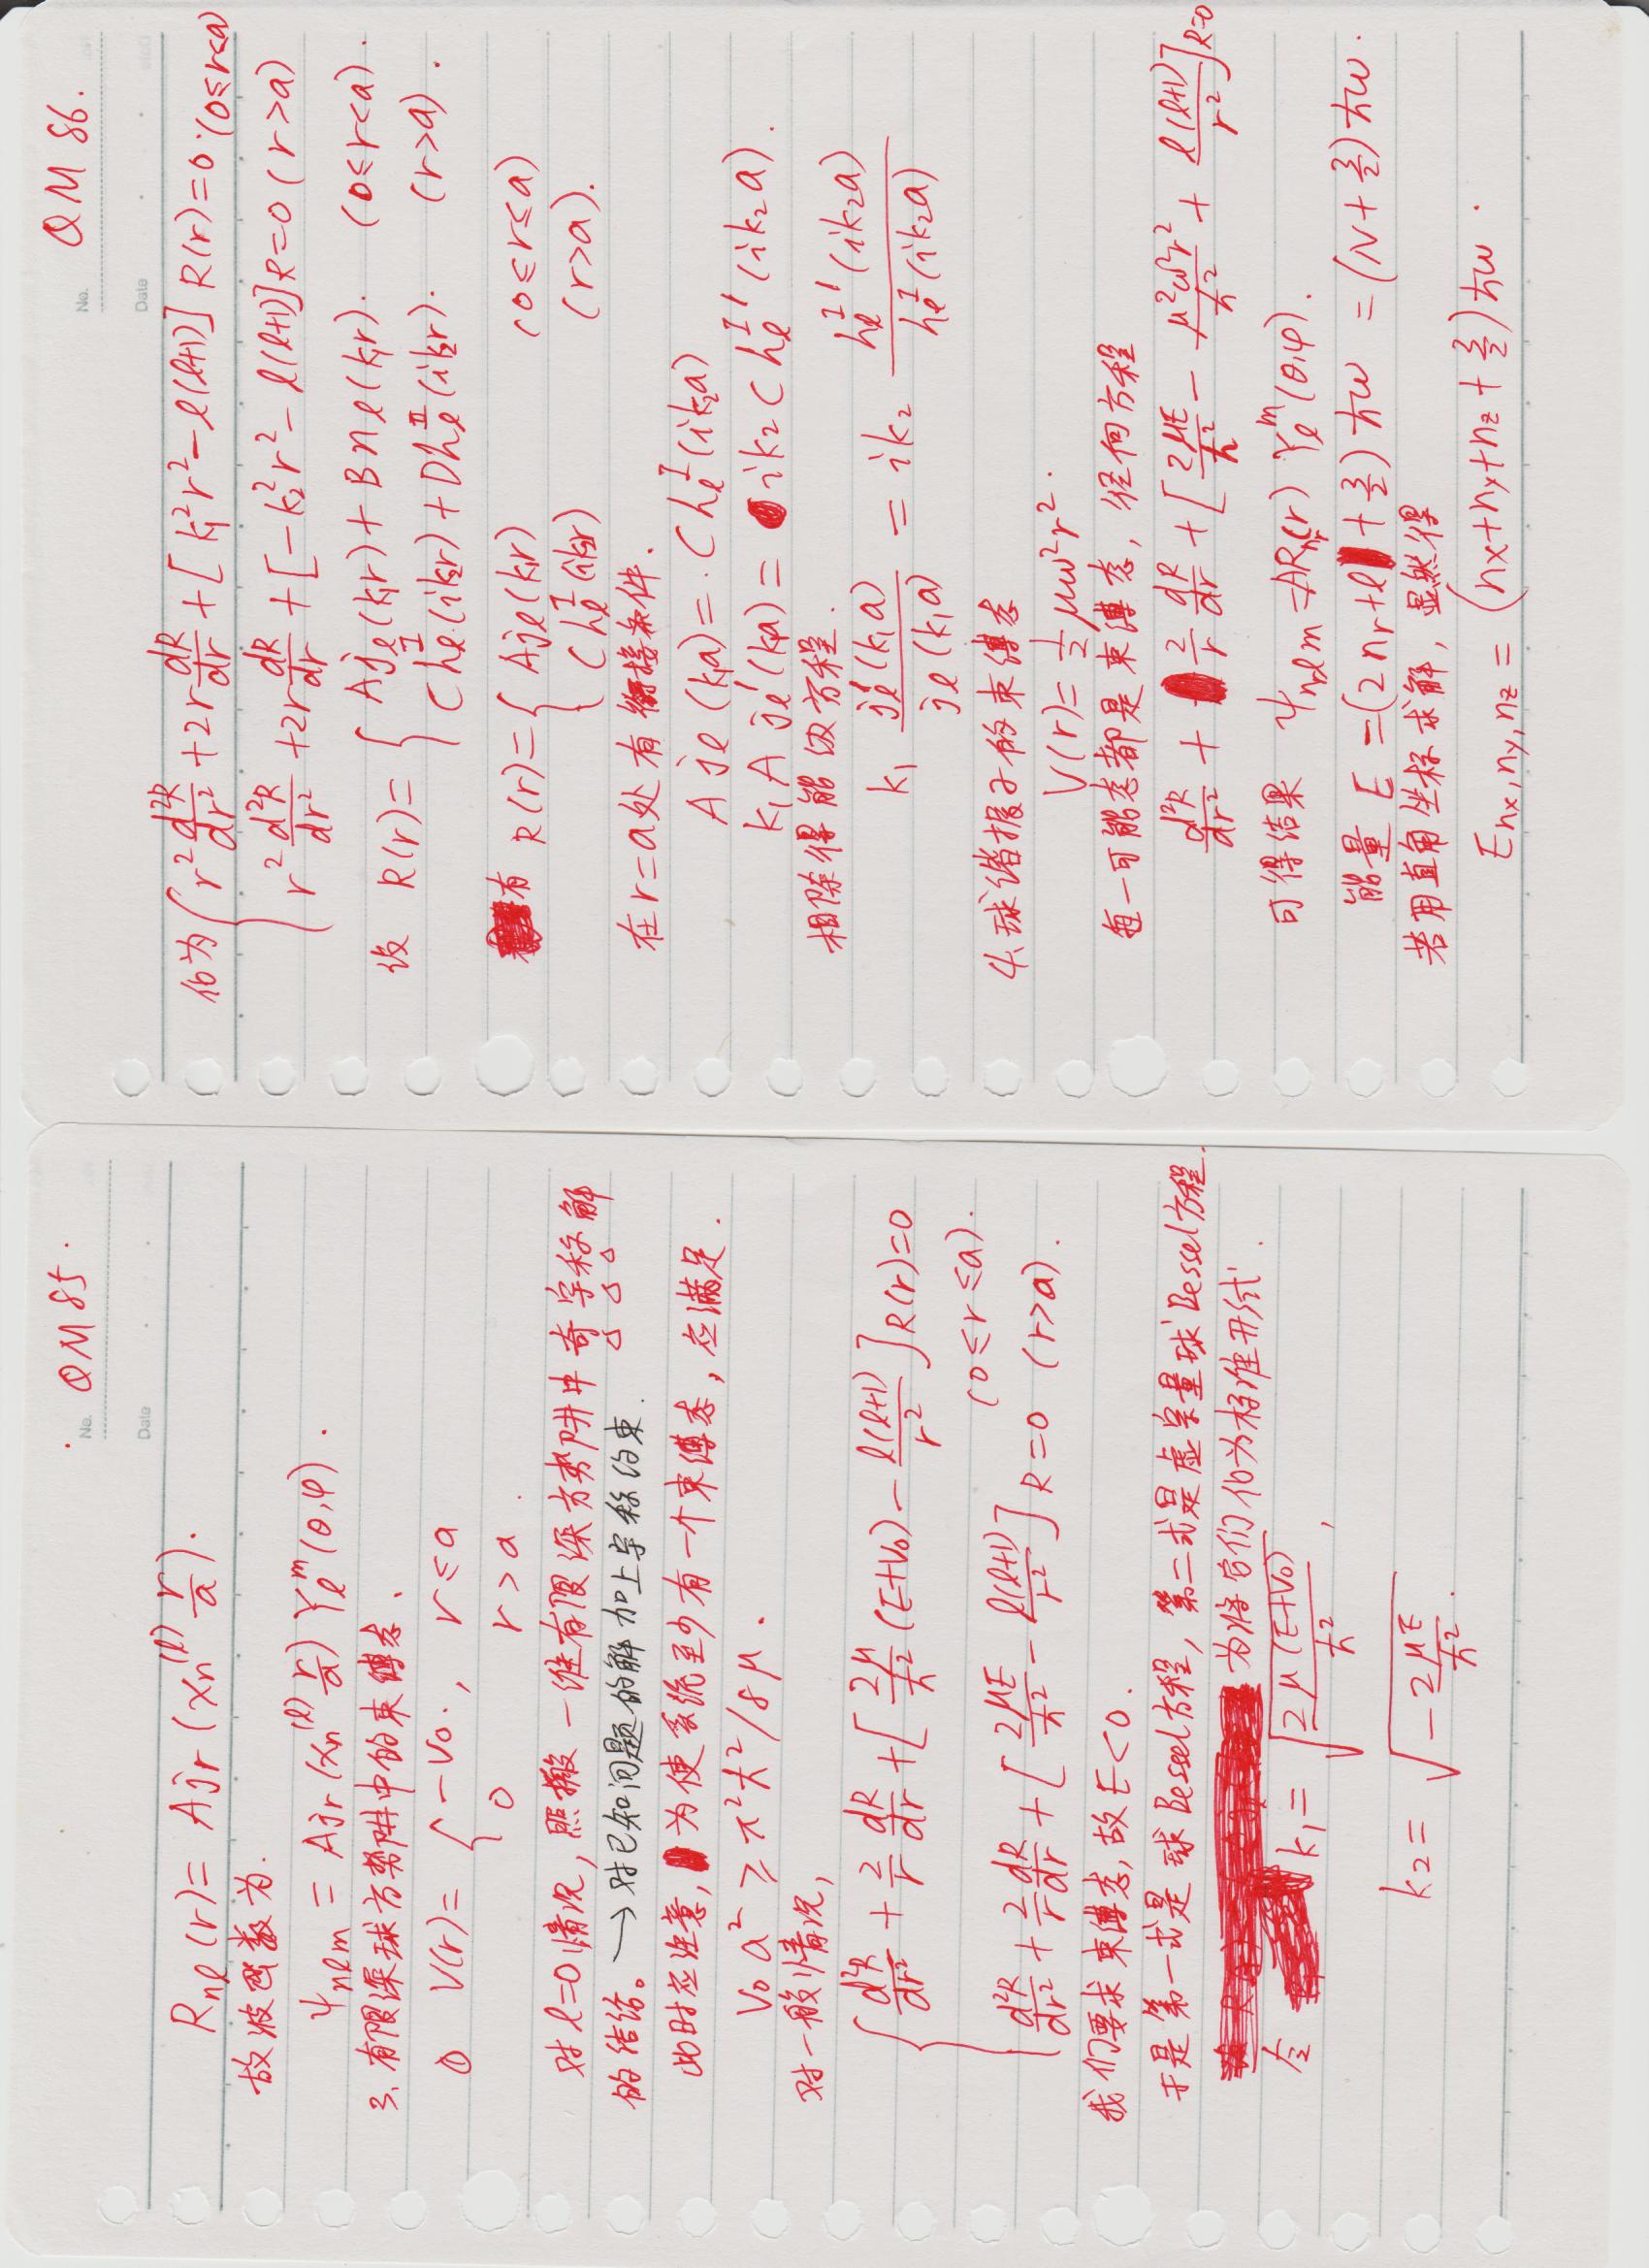 No. QM 85.
Date
R_{nl}(r) = A j_r (x_n^{(l)} r/a).
故波函数为.
ψ_{nlm} = A j_r (x_n^{(l)} r/a) Y_l^m (θ,φ).
3. 有限深球方势阱中的束缚态.
① V(r) = { -V0., r ≤ a
0 r > a.
对 l=0 情况, 照搬一维有限深方势阱中奇宇称解
的结论。 → 对已知问题的解加上宇称约束.
此时应注意, 为使系统至少有一个束缚态, 应满足.
V0 a² ≥ π²ħ²/8μ.
对一般情况,
{ d²R/dr² + 2/r dR/dr + [ 2μ/ħ² (E+V0) - l(l+1)/r² ] R(r)=0
(0 ≤ r ≤ a).
d²R/dr² + 2/r dR/dr + [ 2μE/ħ² - l(l+1)/r² ] R=0 (r>a).
我们要求束缚态, 故E<0.
于是第一式是球Bessel方程, 第二式是虚宗量球Bessel方程.
为将它们化为标准形式.
令 k₁ = √(2μ(E+V0)/ħ²),
k₂ = √(-2μE/ħ²).
No. QM 86.
Date
化为 { r² d²R/dr² + 2r dR/dr + [ k₁²r² - l(l+1) ] R(r)=0. (0≤r<a)
r² d²R/dr² + 2r dR/dr + [ -k₂²r² - l(l+1) ] R=0 (r>a)
设 R(r) = { A j_l(k₁r) + B n_l(k₁r). (0≤r<a).
C h_l^I(ik₂r) + D h_l^II(ik₂r). (r>a).
有 R(r) = { A j_l(k₁r) (0≤r≤a)
C h_l^I(ik₂r) (r>a).
在r=a处有衔接条件.
A j_l(k₁a) = C h_l^I(ik₂a)
k₁ A j_l'(k₁a) = ik₂ C h_l^I'(ik₂a).
相除得能级方程.
k₁ j_l'(k₁a)/j_l(k₁a) = ik₂ h_l^I'(ik₂a)/h_l^I(ik₂a)
4. 球谐振子的束缚态
V(r) = ½ μω²r².
每一可能态都是束缚态, 径向方程
d²R/dr² + 2/r dR/dr + [ 2μE/ħ² - μ²ω²r²/ħ² + l(l+1)/r² ] R=0
可得结果 ψ_{n_r l m} = A R_{n_r l}(r) Y_l^m(θ,φ).
能量 E = (2n_r + l + 3/2)ħω = (N + 3/2)ħω.
若用直角坐标求解, 显然得
E_{nx,ny,nz} = (nx+ny+nz + 3/2)ħω.